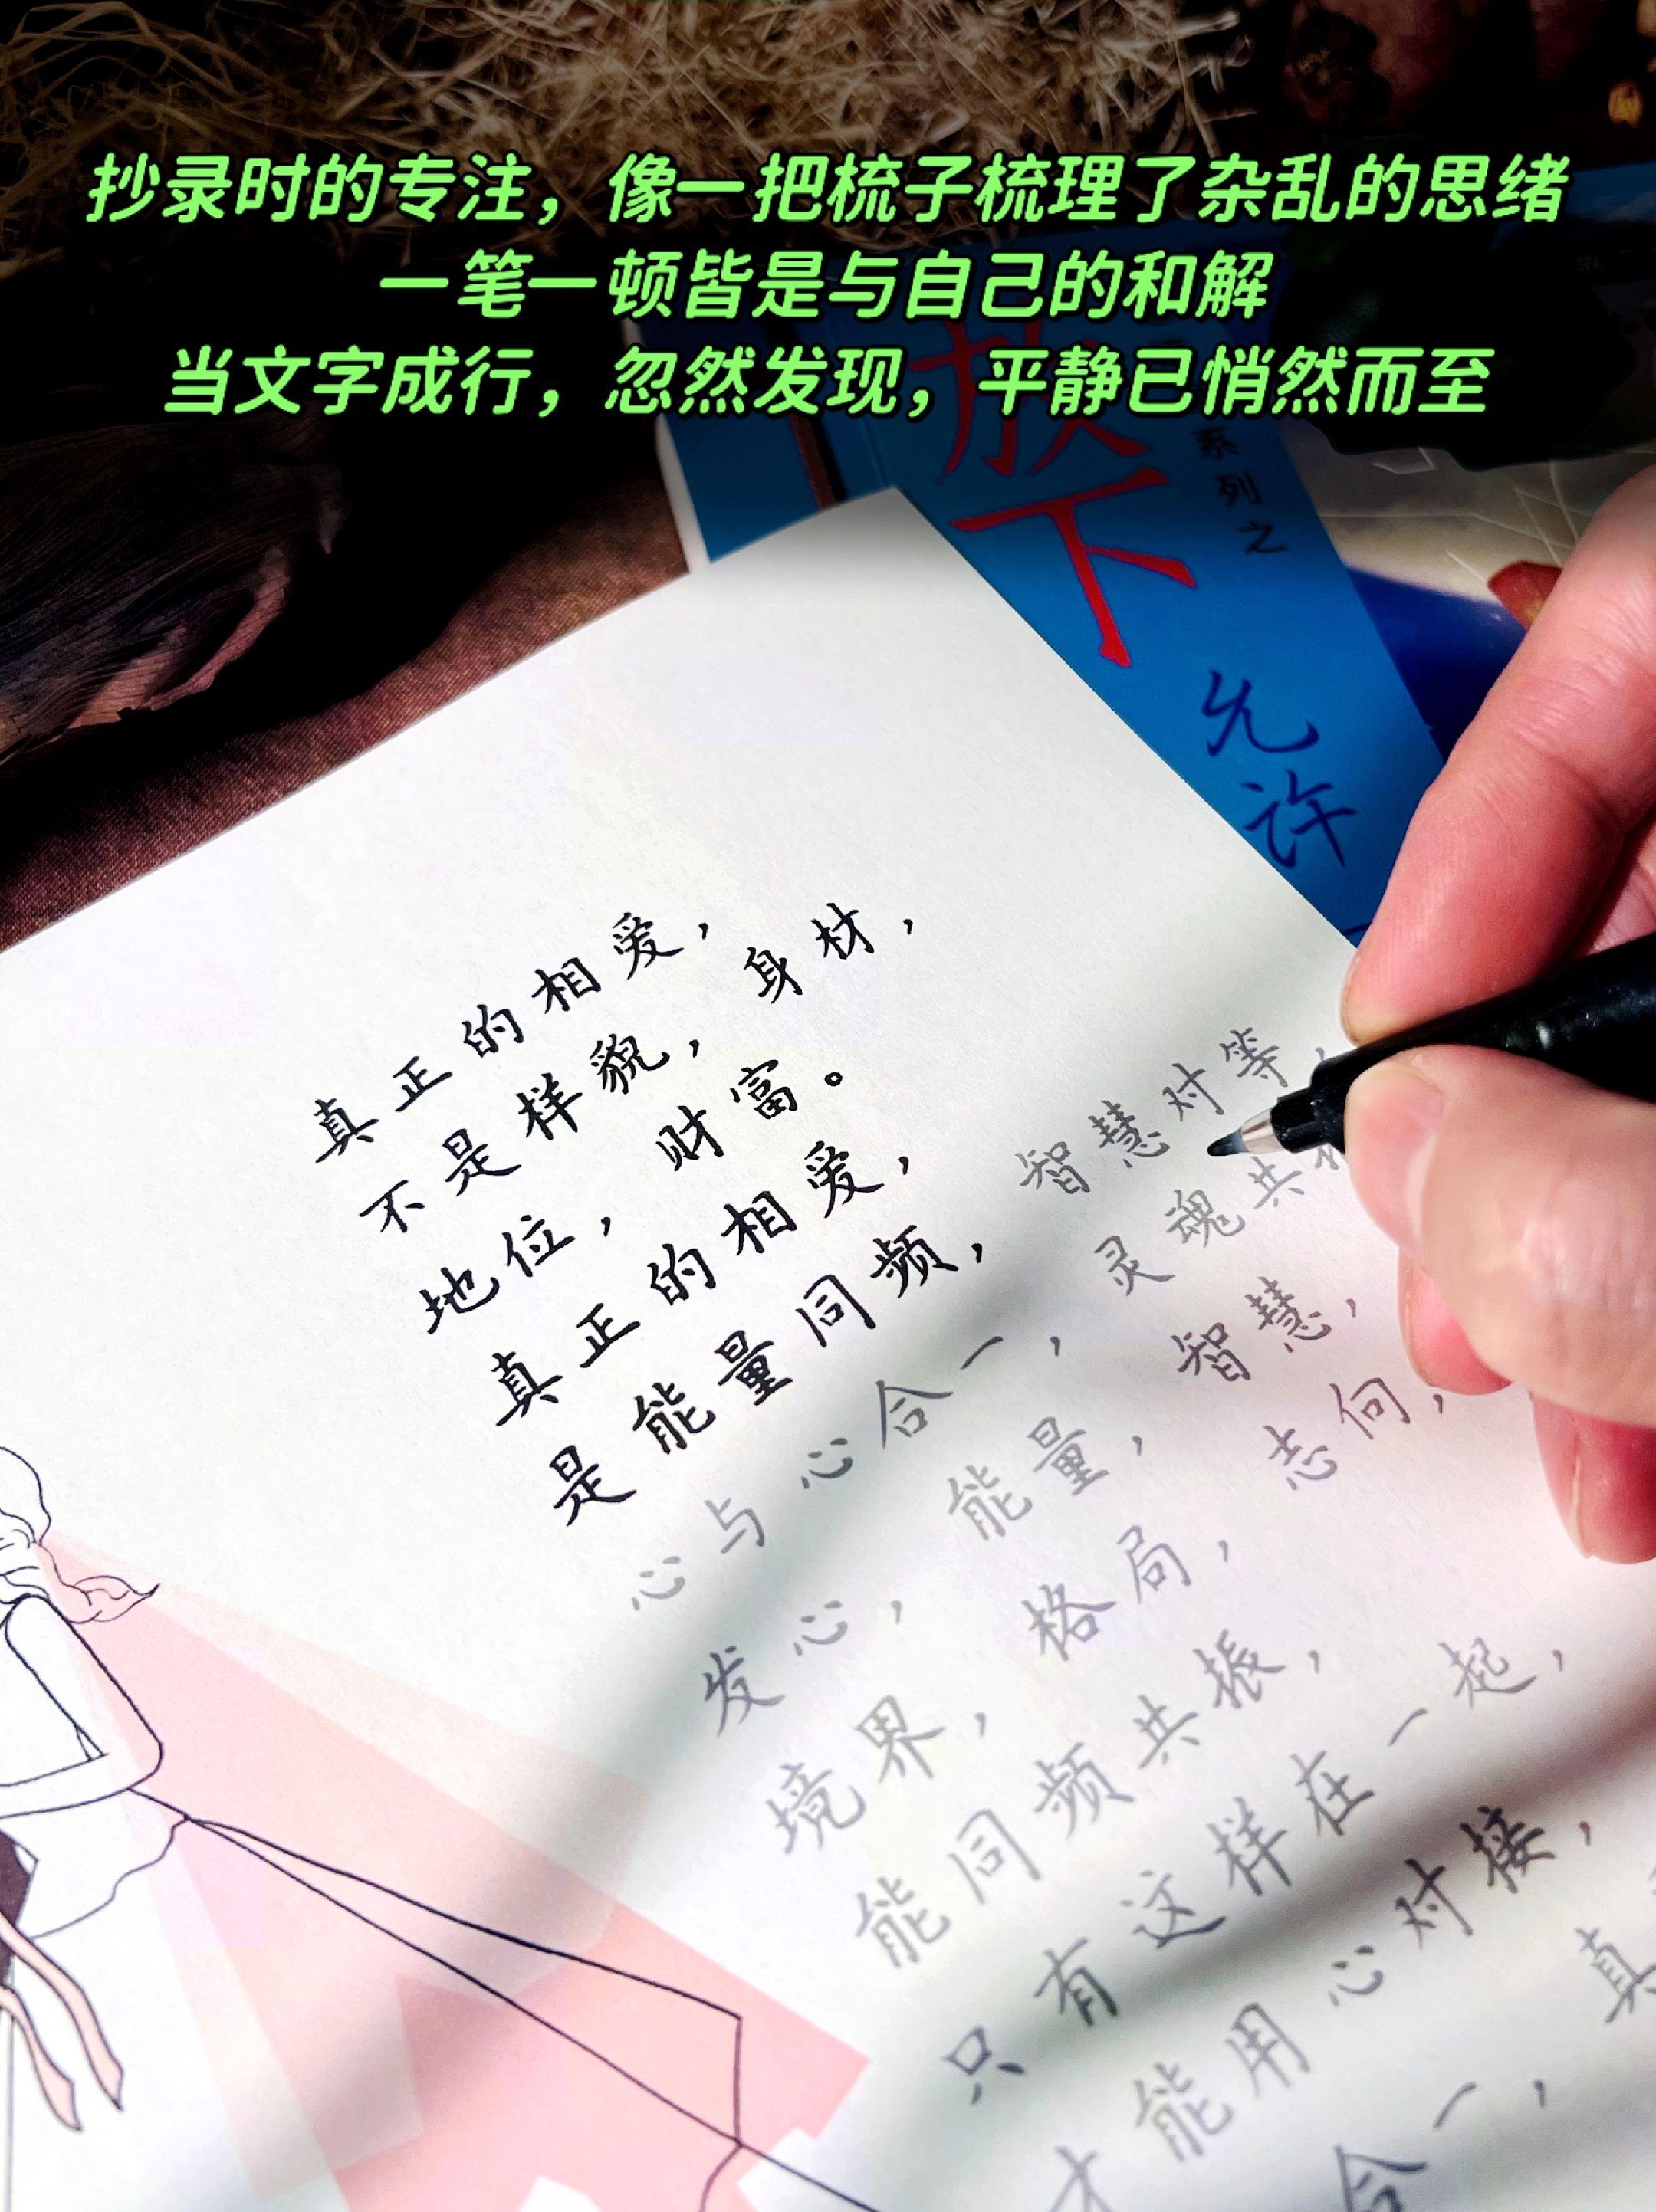 抄录时的专注，像一把梳子梳理了杂乱的思绪
一笔一顿皆是与自己的和解
当文字成行，忽然发现，平静已悄然而至
系列之
放下
允许
真正的相爱，
不是样貌，身材，
地位，财富。
真正的相爱，
是能量同频，智慧对等，
心与心合一，灵魂共
发心，能量，智慧，
境界，格局，志向，
能同频共振，
只有这样在一起，
才能用心对接，
合一，真